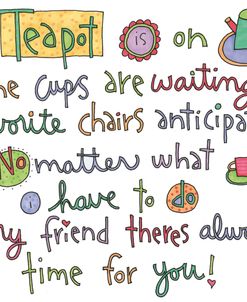 Teapot is on
he cups are waiting
vorite chairs anticipa
No matter what
i have to do
my friend theres alwa
time for you!